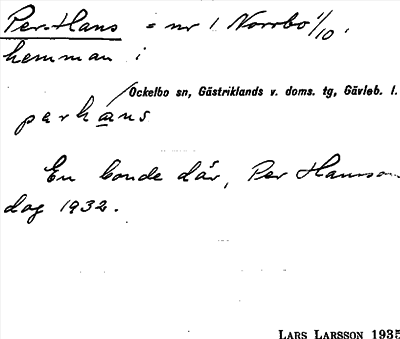 Per-Hans = nr 1 Norrbo 1/10,
hemman i
Ockelbo sn, Gästriklands v. doms. tg, Gävleb. l.
parhans
En bonde där, Per Hansson
dog 1932.
LARS LARSSON 1935